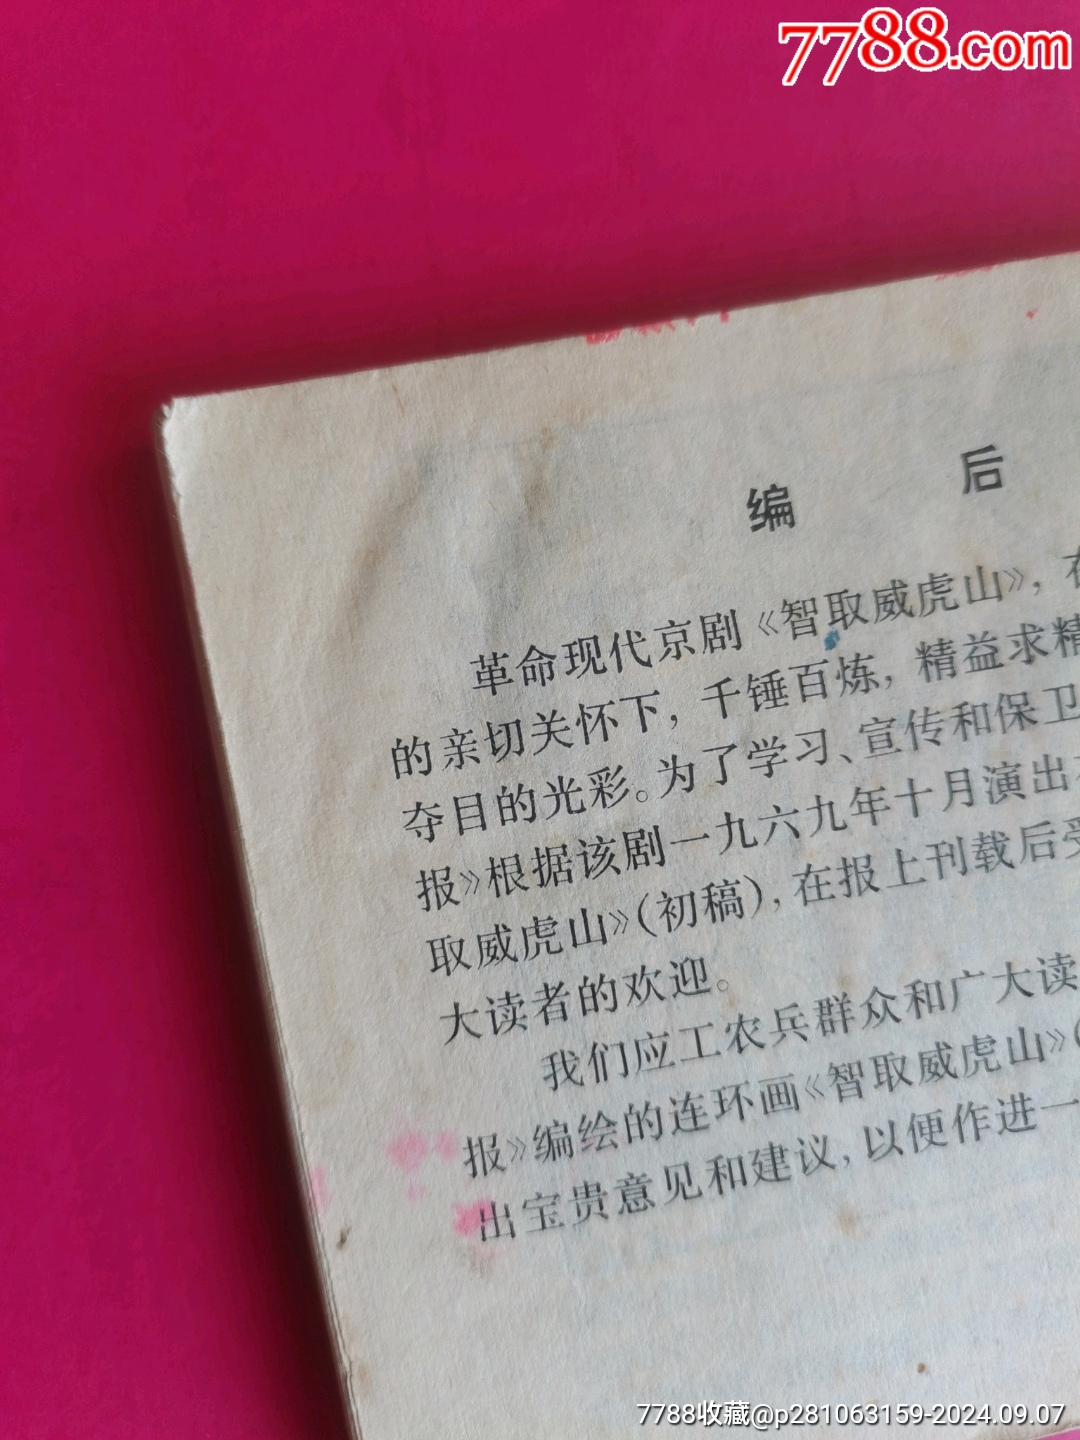 7788.com
编 后
革命现代京剧《智取威虎山》，在
的亲切关怀下，千锤百炼，精益求精
夺目的光彩。为了学习、宣传和保卫
报》根据该剧一九六九年十月演出
取威虎山》(初稿)，在报上刊载后受
大读者的欢迎。
我们应工农兵群众和广大读
报》编绘的连环画《智取威虎山》(
出宝贵意见和建议，以便作进一
7788收藏@p281063159-2024.09.07